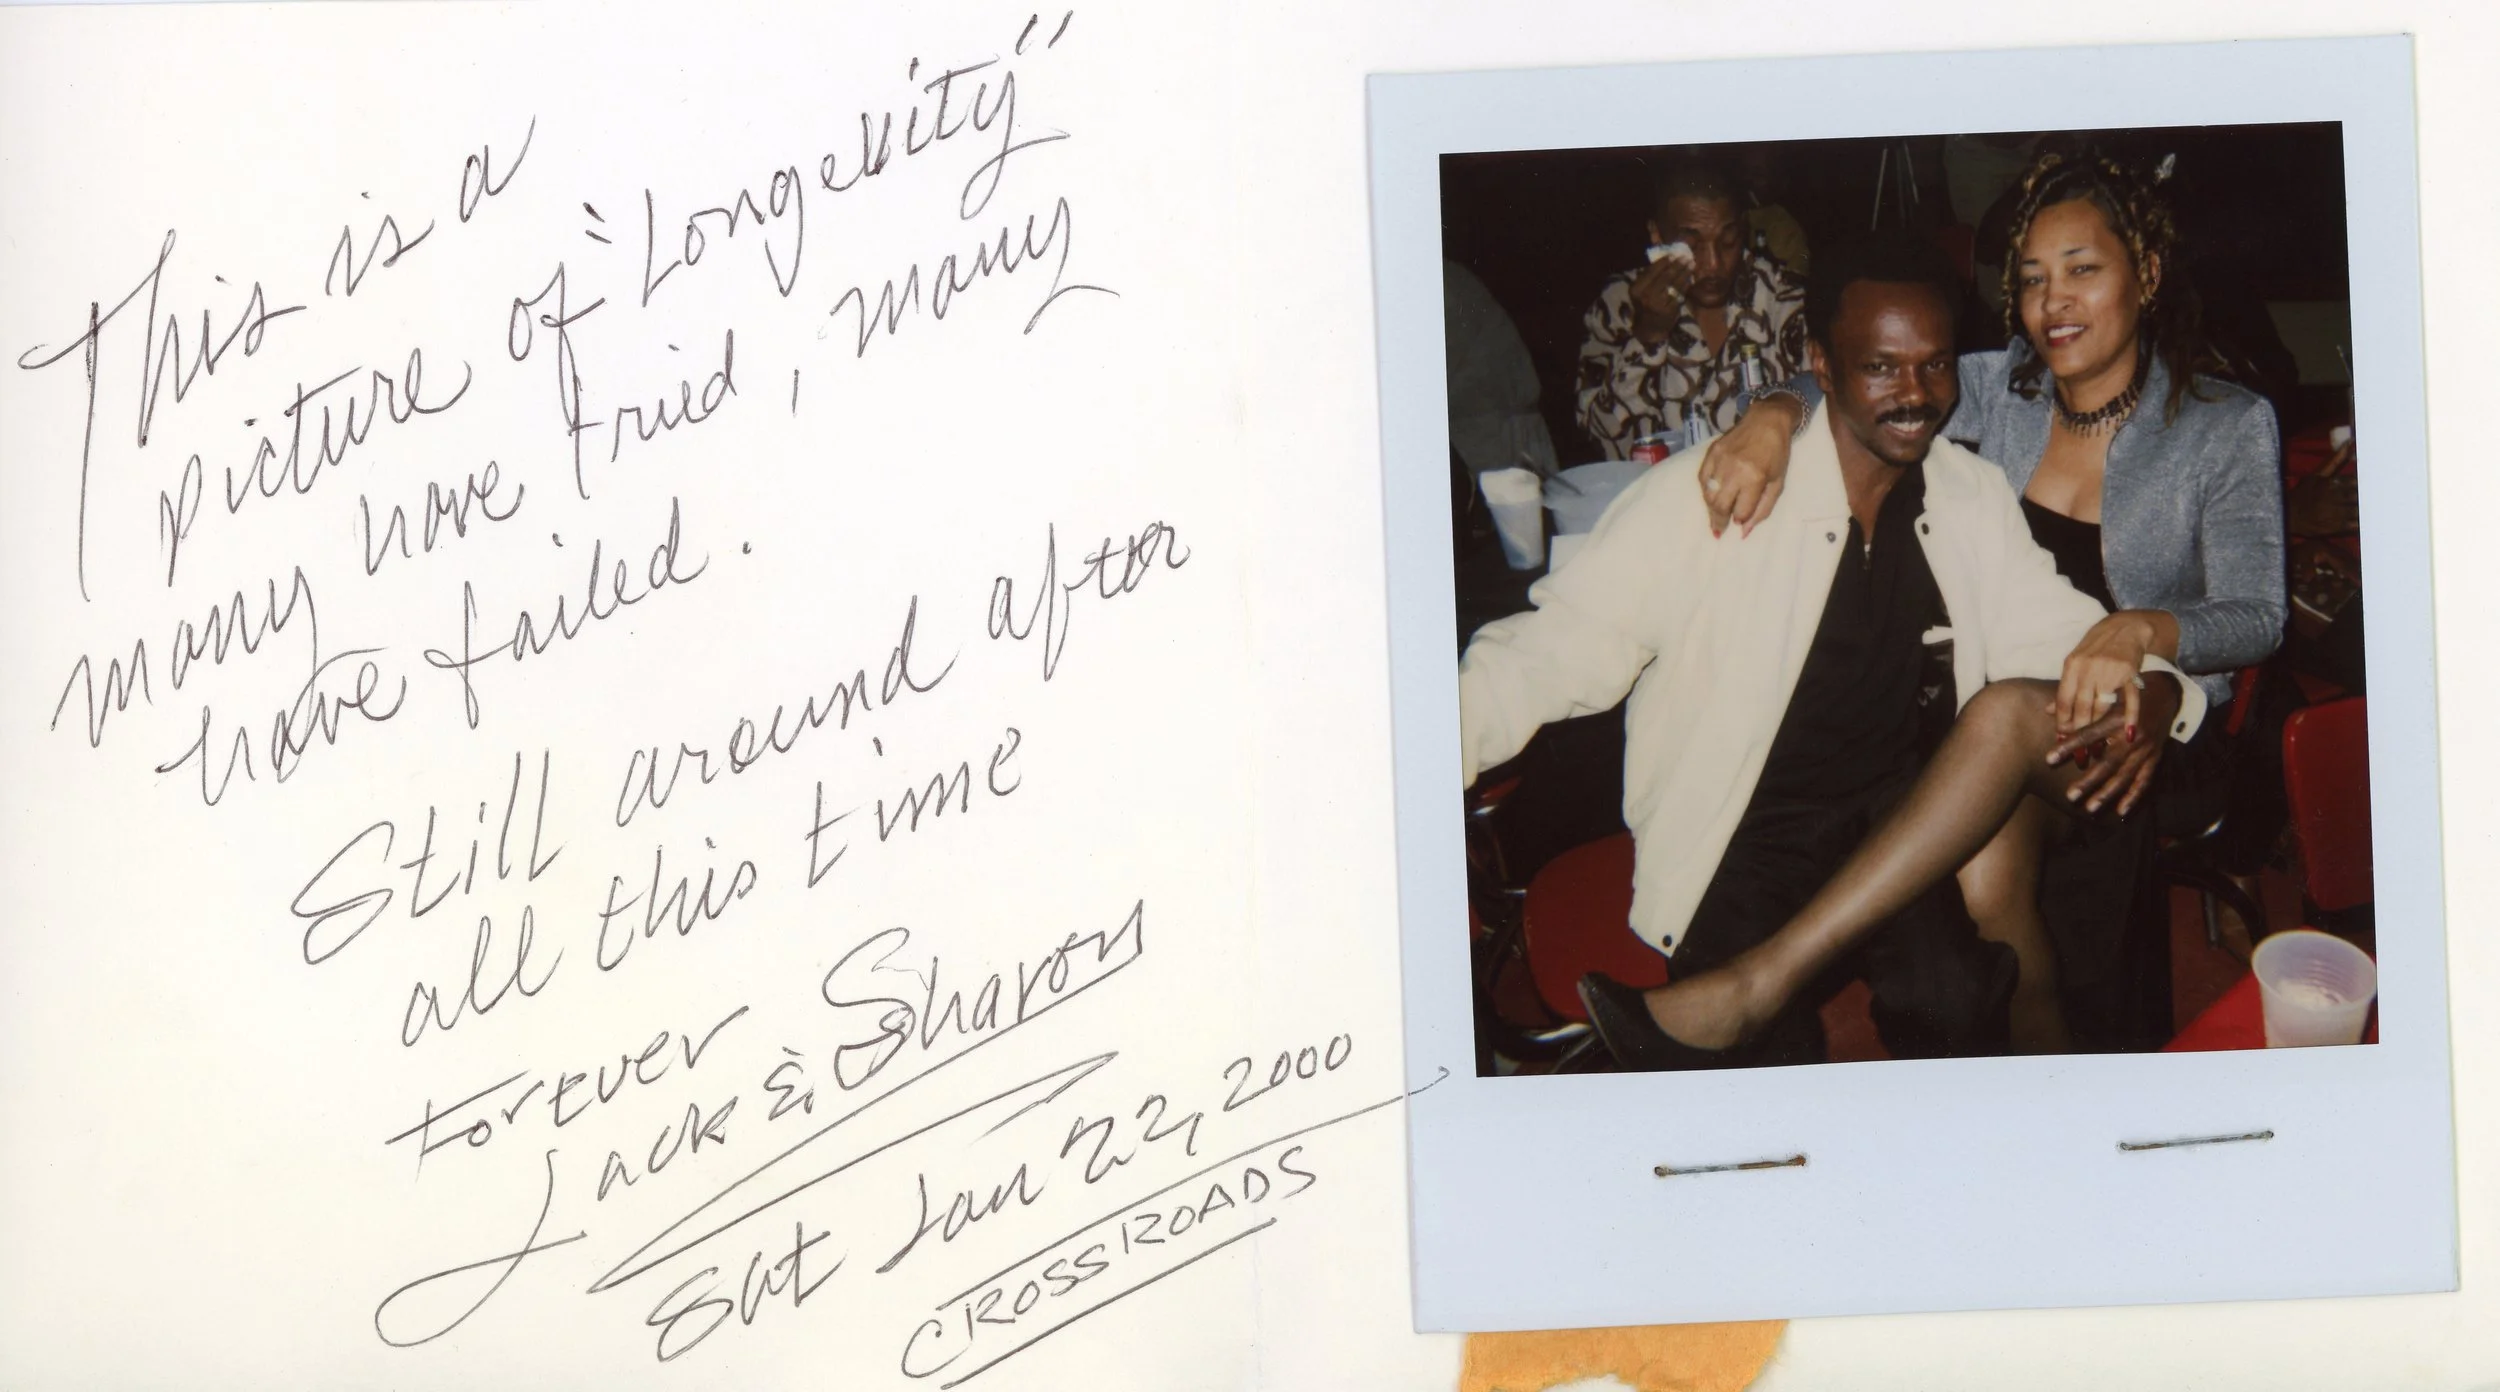 This is a
picture of "Longevity"
many have tried, many
have failed.
Still around after
all this time
Forever
Jack & Sharon
Sat Jan 22, 2000
CROSSROADS